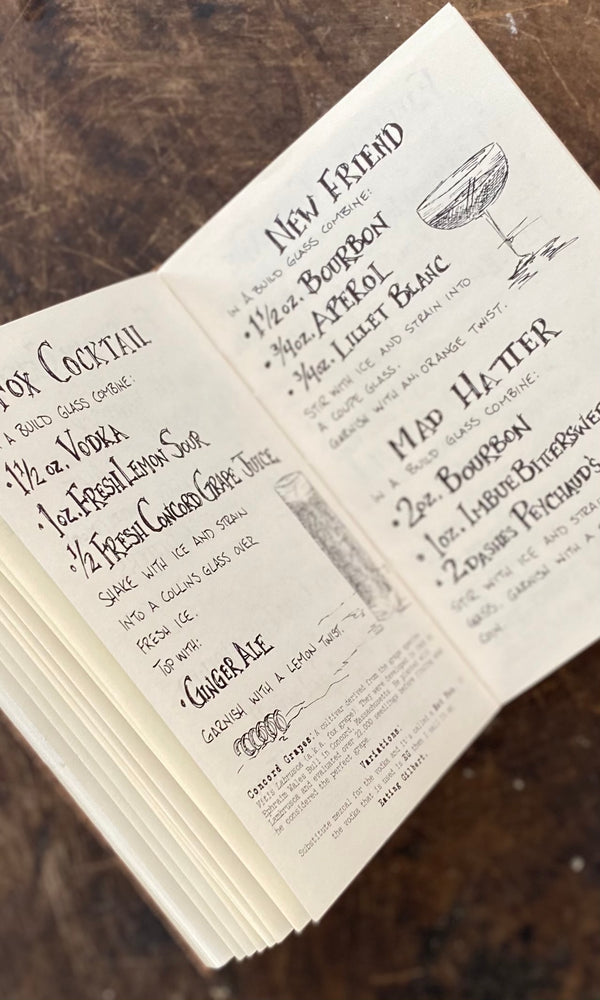 Fox Cocktail
A Build Glass Combine:
• 1 1/2 oz. Vodka
• 1oz. Fresh Lemon Sour
• 1/2 Fresh Concord Grape Juice
Shake with ice and strain
into a Collins glass over
fresh ice.
Top with:
• Ginger Ale
Garnish with a lemon twist.
Concord Grapes: A cultivar derived from the grape species
Vitis Labrusca (a.k.a. fox grape). They were developed in 1849 by
Ephraim Wales Bull in Concord, Massachusetts. He planted wild
Lambrusca and evaluated over 22,000 seedlings before finding what
he considered the perfect grape.
Variations:
Substitute mezcal for the vodka and it's called a
the vodka that is used is
Eating Gilbert.
New Friend
In a Build Glass Combine:
• 1 1/2 oz. Bourbon
• 3/4 oz. Aperol
• 3/4 oz. Lillet Blanc
Stir with ice and strain into
a coupe glass.
Garnish with an orange twist.
Mad Hatter
In a Build Glass Combine:
• 2oz. Bourbon
• 1oz. Imbue Bittersweet
• 2 dashes Peychaud's
Stir with ice and strain
glass. Garnish with a
coin